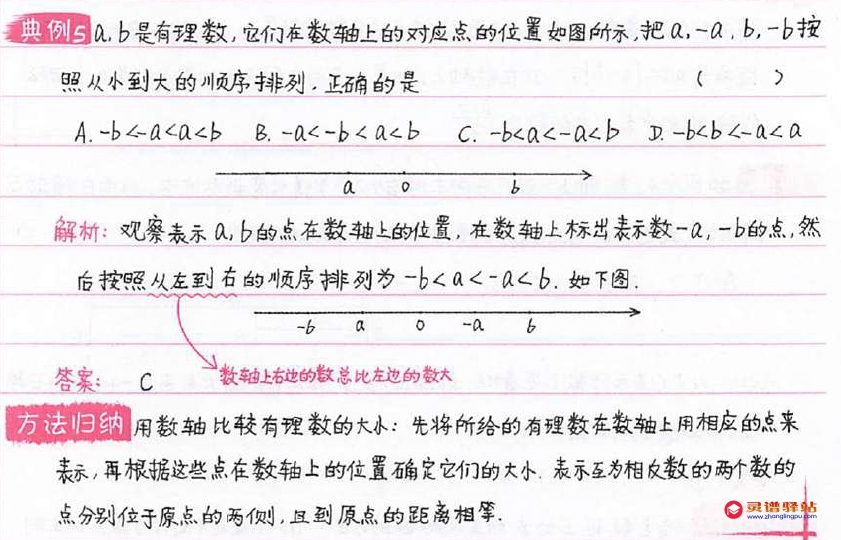 典例5 a,b是有理数,它们在数轴上的对应点的位置如图所示,把a,-a,b,-b按
照从小到大的顺序排列,正确的是 ( )
A. -b<-a<a<b B. -a<-b<a<b C. -b<a<-a<b D. -b<b<-a<a
a 0 b
解析: 观察表示a,b的点在数轴上的位置,在数轴上标出表示数-a,-b的点,然
后按照从左到右的顺序排列为-b<a<-a<b.如下图.
-b a 0 -a b
数轴上右边的数总比左边的数大
答案: C
方法归纳 用数轴比较有理数的大小:先将所给的有理数在数轴上用相应的点来
表示,再根据这些点在数轴上的位置确定它们的大小.表示互为相反数的两个数的
点分别位于原点的两侧,且到原点的距离相等.
灵谱驿站
www.zhonglingpu.com